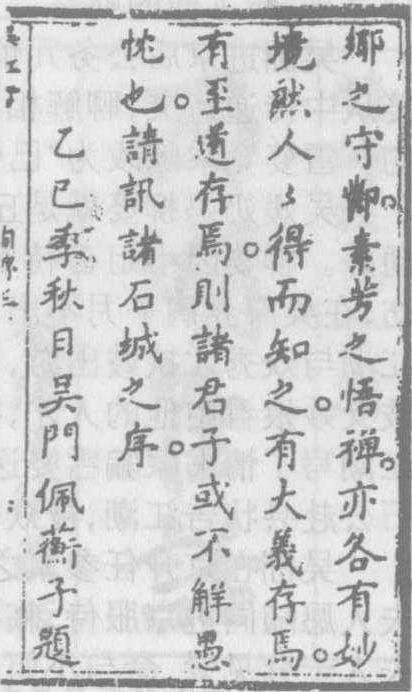 鄉之守鄉。素芳之悟禪。亦各有妙
境。然人人得而知之。有大義存焉。
有至道存焉。則諸君子或不解愚
忱也。請訊諸石城之序。
乙巳季秋日吳門佩蘅子題
自序三